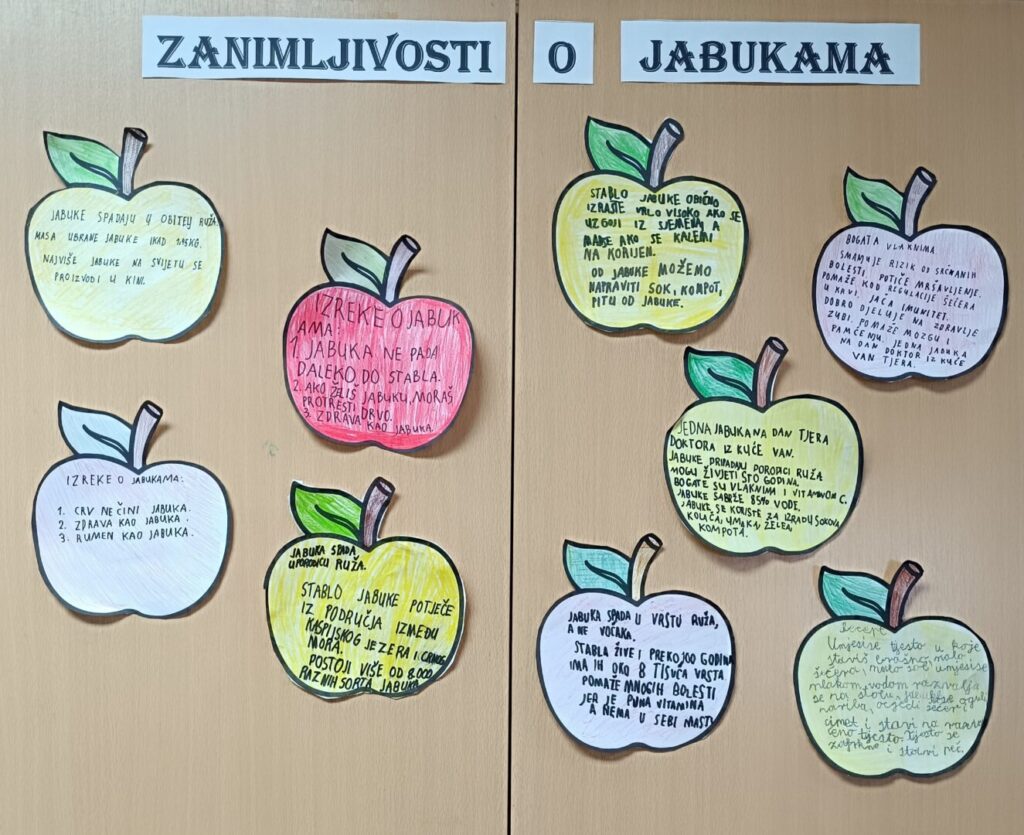 ZANIMLJIVOSTI O JABUKAMA
JABUKE SPADAJU U OBITELJ RUŽA.
MASA UBRANE JABUKE IKAD
NAJVIŠE JABUKE NA SVIJETU SE
PROIZVODI U KINI.
IZREKE O JABUK
AMA:
1. JABUKA NE PADA
DALEKO DO STABLA.
2. AKO ŽELIŠ JABUKU, MORAŠ
PROTRESTI DRVO.
3. ZDRAVA KAO JABUKA.
IZREKE O JABUKAMA:
1. CRV NE ČINI JABUKA.
2. ZDRAVA KAO JABUKA.
3. RUMEN KAO JABUKA.
JABUKA SPADA
U PORODICU RUŽA.
STABLO JABUKE POTJEČE
IZ PODRUČJA IZMEĐU
KASPIJSKOG JEZERA I CRNOG
MORA.
POSTOJI VIŠE OD 8.000
RAZNIH SORTA JABUKA
STABLO JABUKE OBIČNO
IZRASTE VRLO VISOKO AKO SE
UZGOJI IZ SJEMENA, A
MANJE AKO SE KALEMI
NA KORIJEN.
OD JABUKE MOŽEMO
NAPRAVITI SOK, KOMPOT,
PITU OD JABUKE.
BOGATA VLAKNIMA
SMANJUJE RIZIK OD SRČANIH
BOLESTI, POTIČE MRŠAVLJENJE.
POMAŽE KOD REGULACIJE ŠEĆERA
U KRVI. JAČA IMUNITET.
DOBRO DJELUJE NA ZDRAVLJE
ZUBI. POMAŽE MOZGU I
PAMĆENJU. JEDNA JABUKA
NA DAN DOKTOR IZ KUĆE
VAN TJERA.
JEDNA JABUKA NA DAN TJERA
DOKTORA IZ KUĆE VAN.
JABUKE PRIPADAJU PORODICI RUŽA
MOGU ŽIVJETI STO GODINA.
BOGATE SU VLAKNIMA I VITAMINOM C.
JABUKE SADRŽE 85% VODE.
JABUKE SE KORISTE ZA IZRADU SOKOVA
KOLAČA, UMAKA, ŽELEA,
KOMPOTA.
JABUKA SPADA U VRSTU RUŽA,
A NE VOĆAKA.
STABLA ŽIVE I PREKO 100 GODINA
IMA IH OKO 8 TISUĆA VRSTA
POMAŽE MNOGIH BOLESTI
JER JE PUNA VITAMINA
A NEMA U SEBI MASTI
Recept
Umjesise tjesto u koje
staviš brašno malo
šećera, malo soli, umjesise
mlakom vodom razvalja
se na stolu, jabuke se oguli
nariba, ocjedi šećer i
cimet i stavi na razva
ceno tjesto. Tjesto se
i stavi peč.